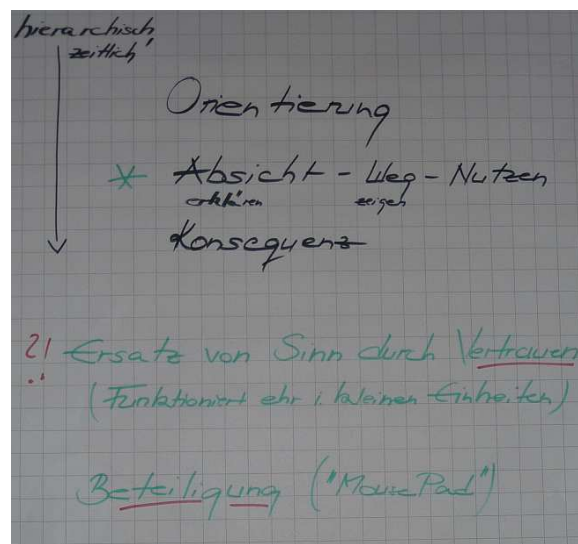 hierarchisch,
zeitlich
Orientierung
* Absicht - Weg - Nutzen
erklären zeigen
Konsequenz
?! Ersatz von Sinn durch Vertrauen
(Funktioniert ehr i. kleinen Einheiten)
Beteiligung ("MousePad")